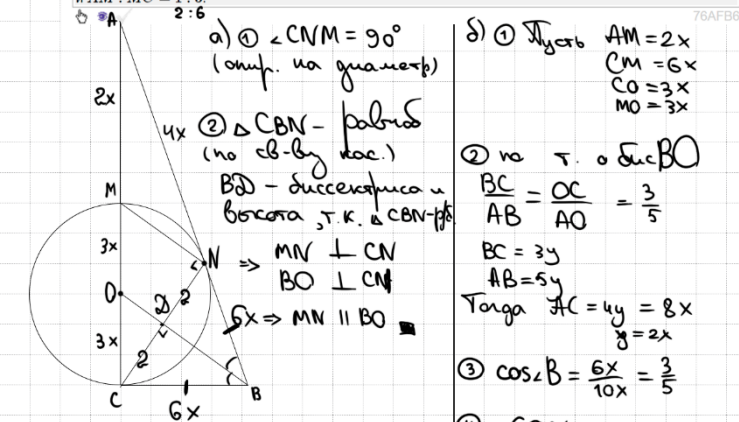 2:6
76AFB6
A
2x
4x
M
3x
N
O
D
2
3x
2
6x
C
B
6x
а) ① ∠CNM = 90°
(опир. на диаметр)
② △CBN – равноб
(по св-ву кас.)
BD – биссектриса и
высота, т.к. △CBN-р/б
=> MN ⊥ CN
BO ⊥ CN
=> MN || BO ■
б) ① Пусть AM = 2x
CM = 6x
CO = 3x
MO = 3x
② по т. о бис BO
BC/AB = OC/AO = 3/5
BC = 3y
AB = 5y
Тогда AC = 4y = 8x
y = 2x
③ cos∠B = 6x/10x = 3/5